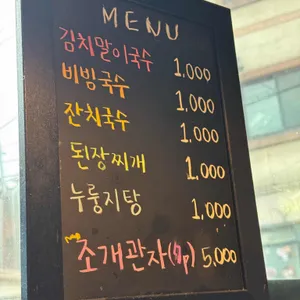 MENU
김치말이국수 1,000
비빔국수 1,000
잔치국수 1,000
된장찌개 1,000
누룽지탕 1,000
조개관자(7p) 5,000